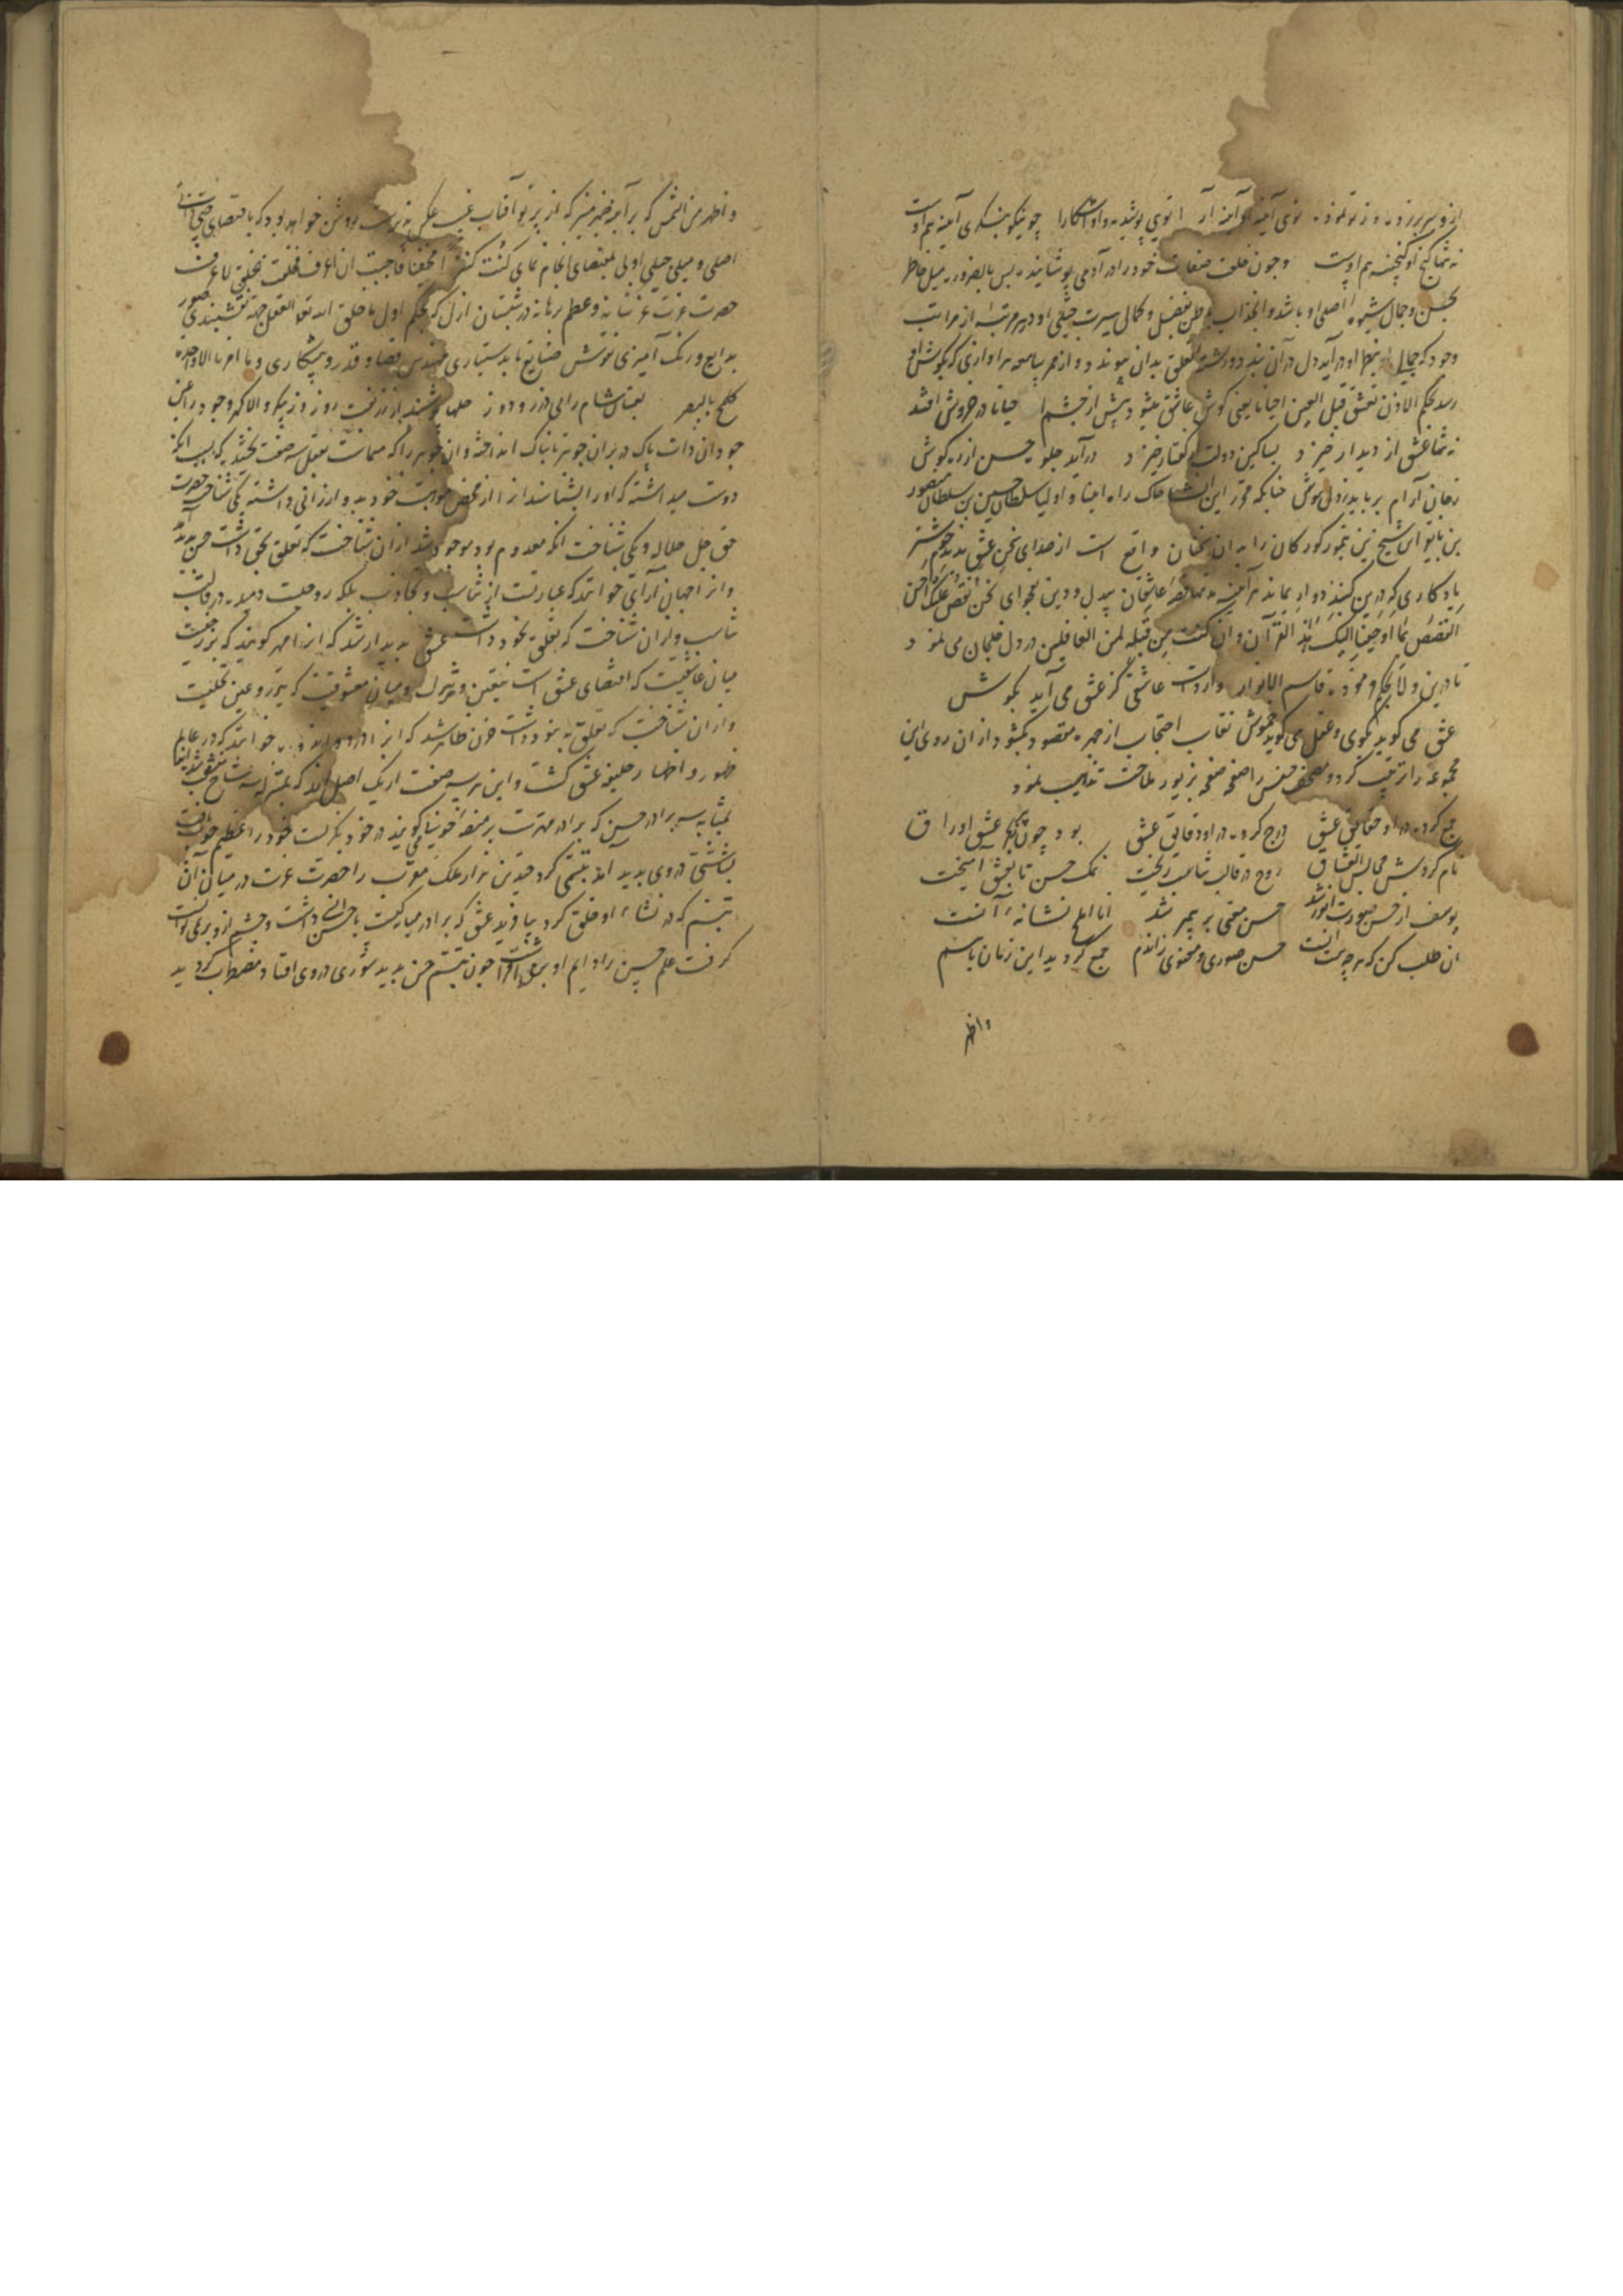 نه تنها گنج او گنجینه هم اوست وجون خلعت صفات خود را در آدمی پوشانیده پس بالضرور میل خاطر
بحسن وجمال شیوه اصلی او باشد وانجذاب باطن بفضل وکمال سیرت جبلی او در هر مرتبه از مراتب
وجود که جمالی در نظر او در آید دل در آن بندد و رشته تعلق بدان پیوندد واز ممر سامعه هر آوازی که بگوش او
رسد بحکم الاذن تعشق قبل العین احیانا یعنی کوش عاشق میشود پیش از چشم احیانا در خروش افتد
نه تنها عشق از دیدار خیزد بسا کین دولت از گفتار خیزد درآید جلوه حسن از ره کوش
زجان آرام برباید زدل هوش چنانکه محرر این خاک راه ابنیا و اولیا سلطان حسین بن سلطان منصور
بن بایقرا بن شیخ بن تیمور کورکان را به ان سخنان واقع است از صدای سخن عشق ندیدم خوشتر
یادکاری که درین کنبد دوار بماند هر آینه قصه عاشقان بیدل ودین بفحوای نحن نقص علیک احسن
القصص بما اوحینا الیک هذا القرآن وان کنت من قبله لمن الغافلین در دل خلجان می نمود
تا درین ولا بحکم فرموده قاسم الانوار واردات عاشقی کز عشق می آید بکوش
عشق می کوید بکوی وعقل می کوید خموش نقاب احتجاب از چهره مقصود بکشود از ان روی این
مجموعه را ترتیب کرد ومصحف حسن را صفحه صفحه بزیور ملاحت تذهیب نمود
جمع کرده در او حقایق عشق درج کرده در او دقایق عشق بود چون همه عشق اوراق
نام کردش مجالس العشاق روح در قالب تناسب ریخت نمک حسن تا بعشق آمیخت
یوسف از حسن صورت انور شد حسن معنی بر پیمبر شد انا املح نشانه آنست
آن طلب کن که هر چه هست آنست حسن صوری ومعنوی زاندم جمع کردید این زمان باسم
واظهر
واظهر من الشمس که بر آینه ضمیر منیر که از پرتو آفتاب غیب عکس پذیرست روشن خواهد بود که باقتضای حب ذاتی
اصلی ومیل جبلی اولی بمقتضای انجام نمای کنت کنزا مخفیا فاحببت ان اعرف فخلقت الخلق لاعرف
حضرت عزت عز شانه وعظم برهانه در شبستان ازل که بحکم اول ما خلق الله تعالی العقل جهة نقشبندی صور
بدایع ورنک آمیزی نقوش صنایع بدستیاری مهندس قضا وقدر وپیشکاری وما امرنا الا واحدة
کلمح بالبصر
جو دان ذات پاک در بران جوهر تابناک انداخته وان جوهر را که مسماست بعقل سه صفت بخشید که بسبب انکه
دوست میداشته که او را بشناسند از محض موهبت خود بدو ارزانی داشته یکی شناخت حضرت
حق جل جلاله ویکی شناخت انکه معدوم بود موجود شد از ان شناخت که تعلق بحق داشت حسن پدید آمد
وانرا جهان آرای خوانند که عبارتست از تناسب وتجاذب بلکه روحیست دمیده در قالب
تناسب واز ان شناخت که تعلق بخود داشت عشق پدیدار شد که انرا مهر کویند که برزخیست
میان عاشقیت که اقتضای عشق است بتعین وتنزل ومیان معشوقیت که تجرد وعین تجلیست
واز ان شناخت که تعلق به نبود داشت حزن ظاهر شد که انرا درد واندوه خوانند که در عالم
ظهور واظهار خلیفه عشق کشت واین هر سه صفت از یک اصل اند که بمنزله سه شاخ منشعب شد انها
بمثابه سه برادر حسن که برادر مهترست بر منظر خوبیها می کویند در خود نکریست خود را عظیم خوب یافت
بشاشتی در وی پدید آمد تبسمی کرد چندین هزار ملک مقرب را حضرت عزت در میان آن
تبسم که در نشاء او خلق کرد بیافرید عشق که برادر میانکیست با حسن انسی داشت وچشم از او بر نمی توانست
کرفت علم حسن را دایم او بر می افراشت چون تبسم حسن بدید شوری در وی افتاد مضطرب کردید